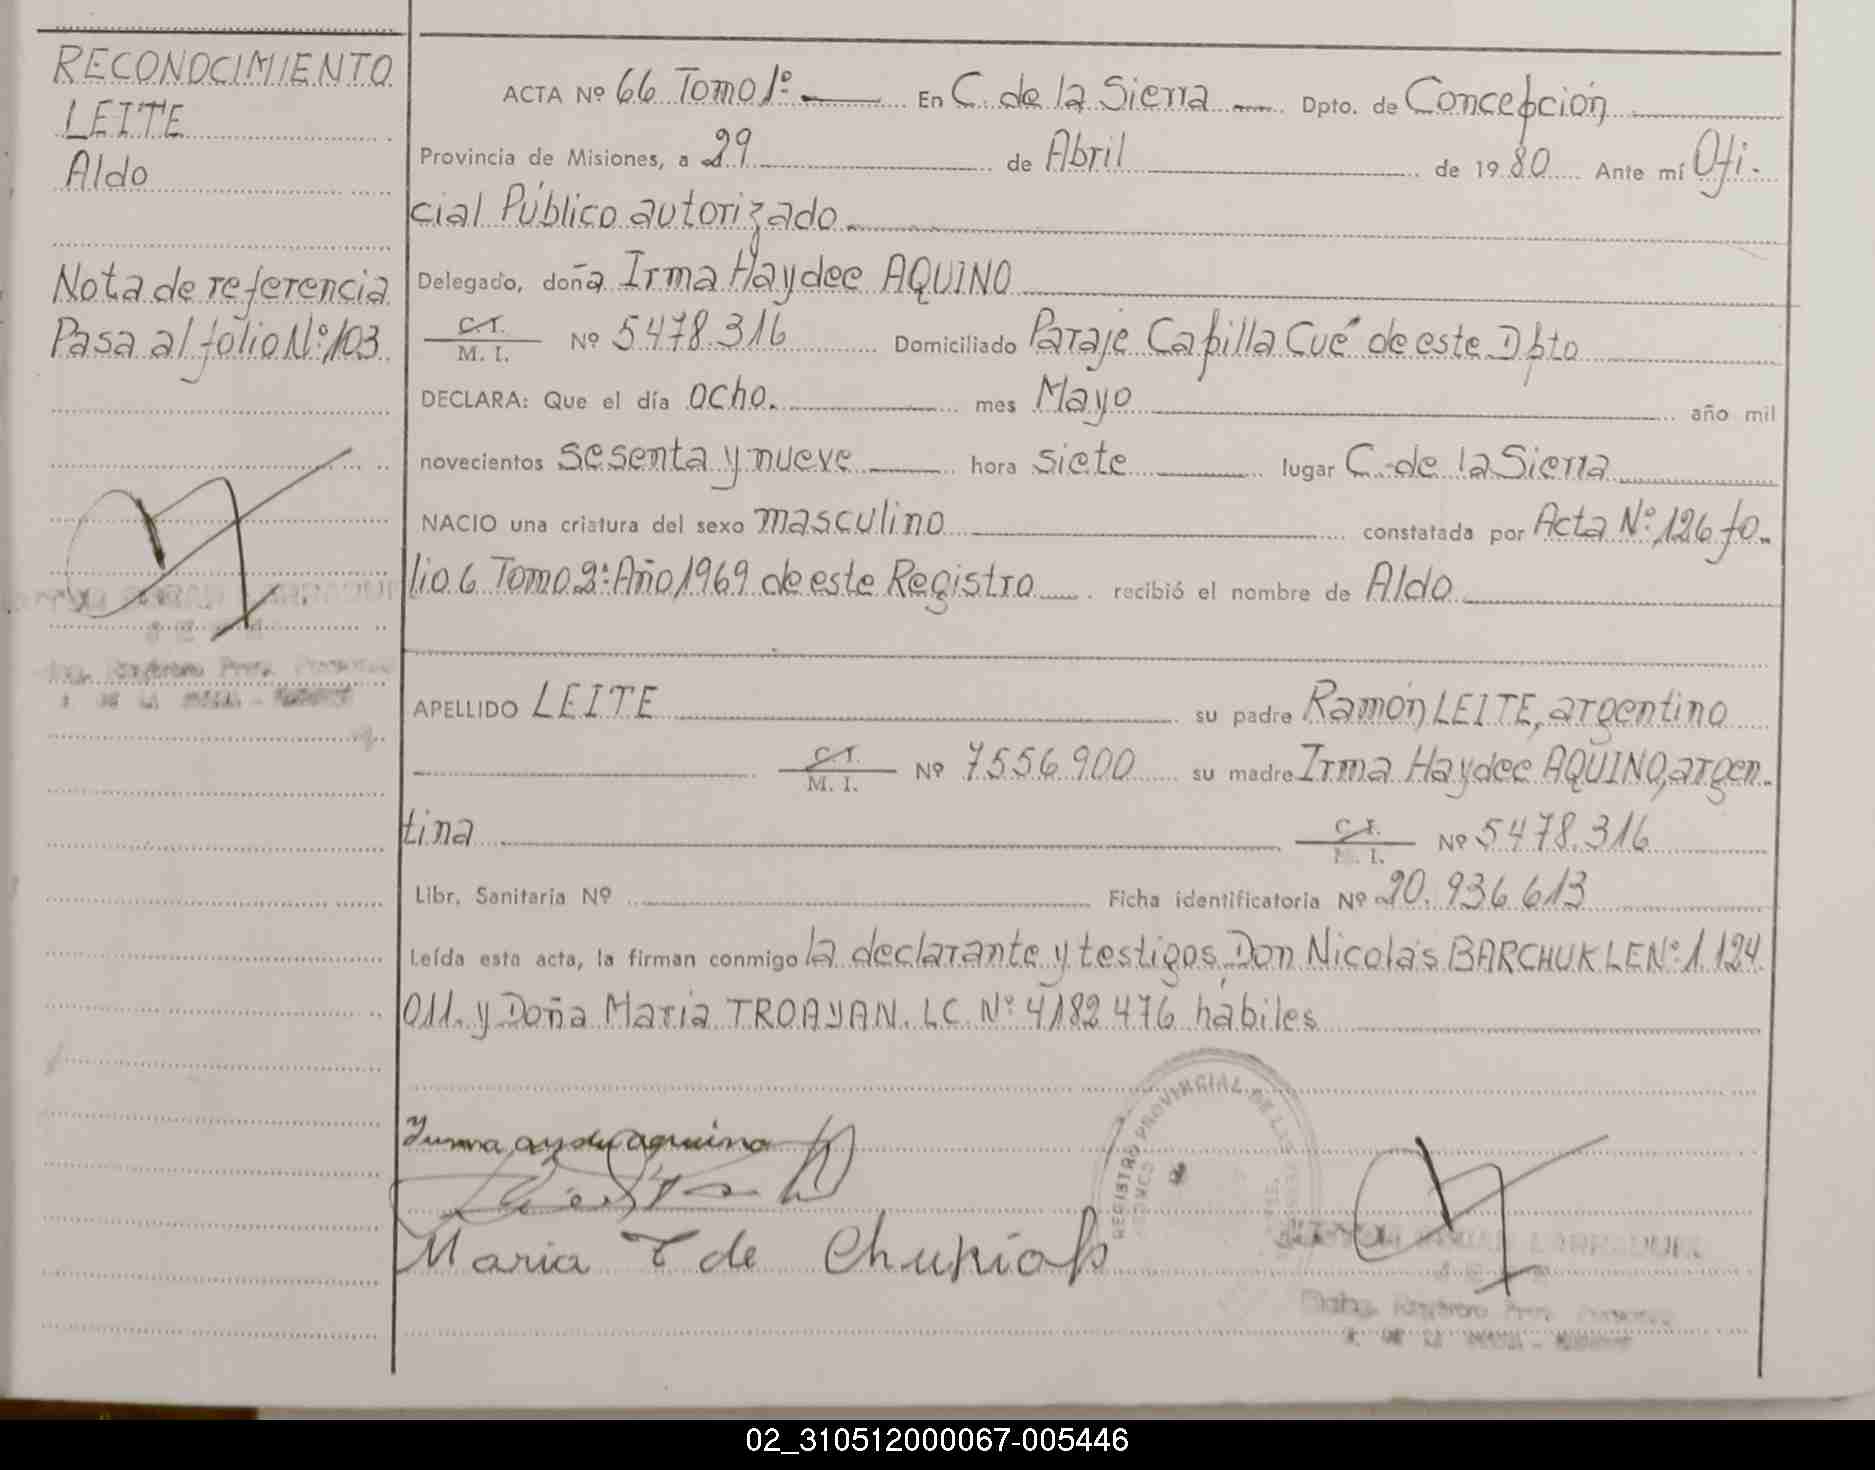 RECONOCIMIENTO
LEITE
Aldo
Nota de referencia
Pasa al folio Nº 103
ACTA Nº 66 Tomo 1º En C. de la Sierra Dpto. de Concepción
Provincia de Misiones, a 29 de Abril de 1980 Ante mí Ofi.
cial Público autorizado
Delegado, doña Irma Haydee AQUINO
C.I. M. I. Nº 5478.316 Domiciliado Paraje Capilla Cué de este Dpto
DECLARA: Que el día ocho. mes Mayo año mil
novecientos sesenta y nueve hora siete lugar C. de la Sierra
NACIO una criatura del sexo masculino constatada por Acta Nº 126 fo.
lio 6 Tomo 2º Año 1969 de este Registro recibió el nombre de Aldo
APELLIDO LEITE su padre Ramón LEITE, argentino
C.I. M. I. Nº 7556.900 su madre Irma Haydee AQUINO, argen.
tina C.I. M. I. Nº 5478.316
Libr. Sanitaria Nº Ficha identificatoria Nº 20.936.613
Leída esta acta, la firman conmigo la declarante y testigos Don Nicolás BARCHUK LE Nº 1.124.
011. y Doña María TROAYAN. LC. Nº 4182476 hábiles
REGISTRO PROVINCIAL DE LAS
Maria T de Chupiak
02_310512000067-005446